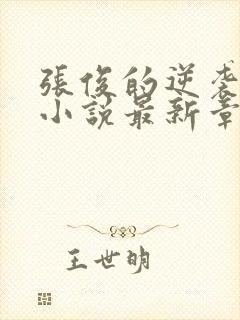 張俊的逆袭
小説最新章
王世明